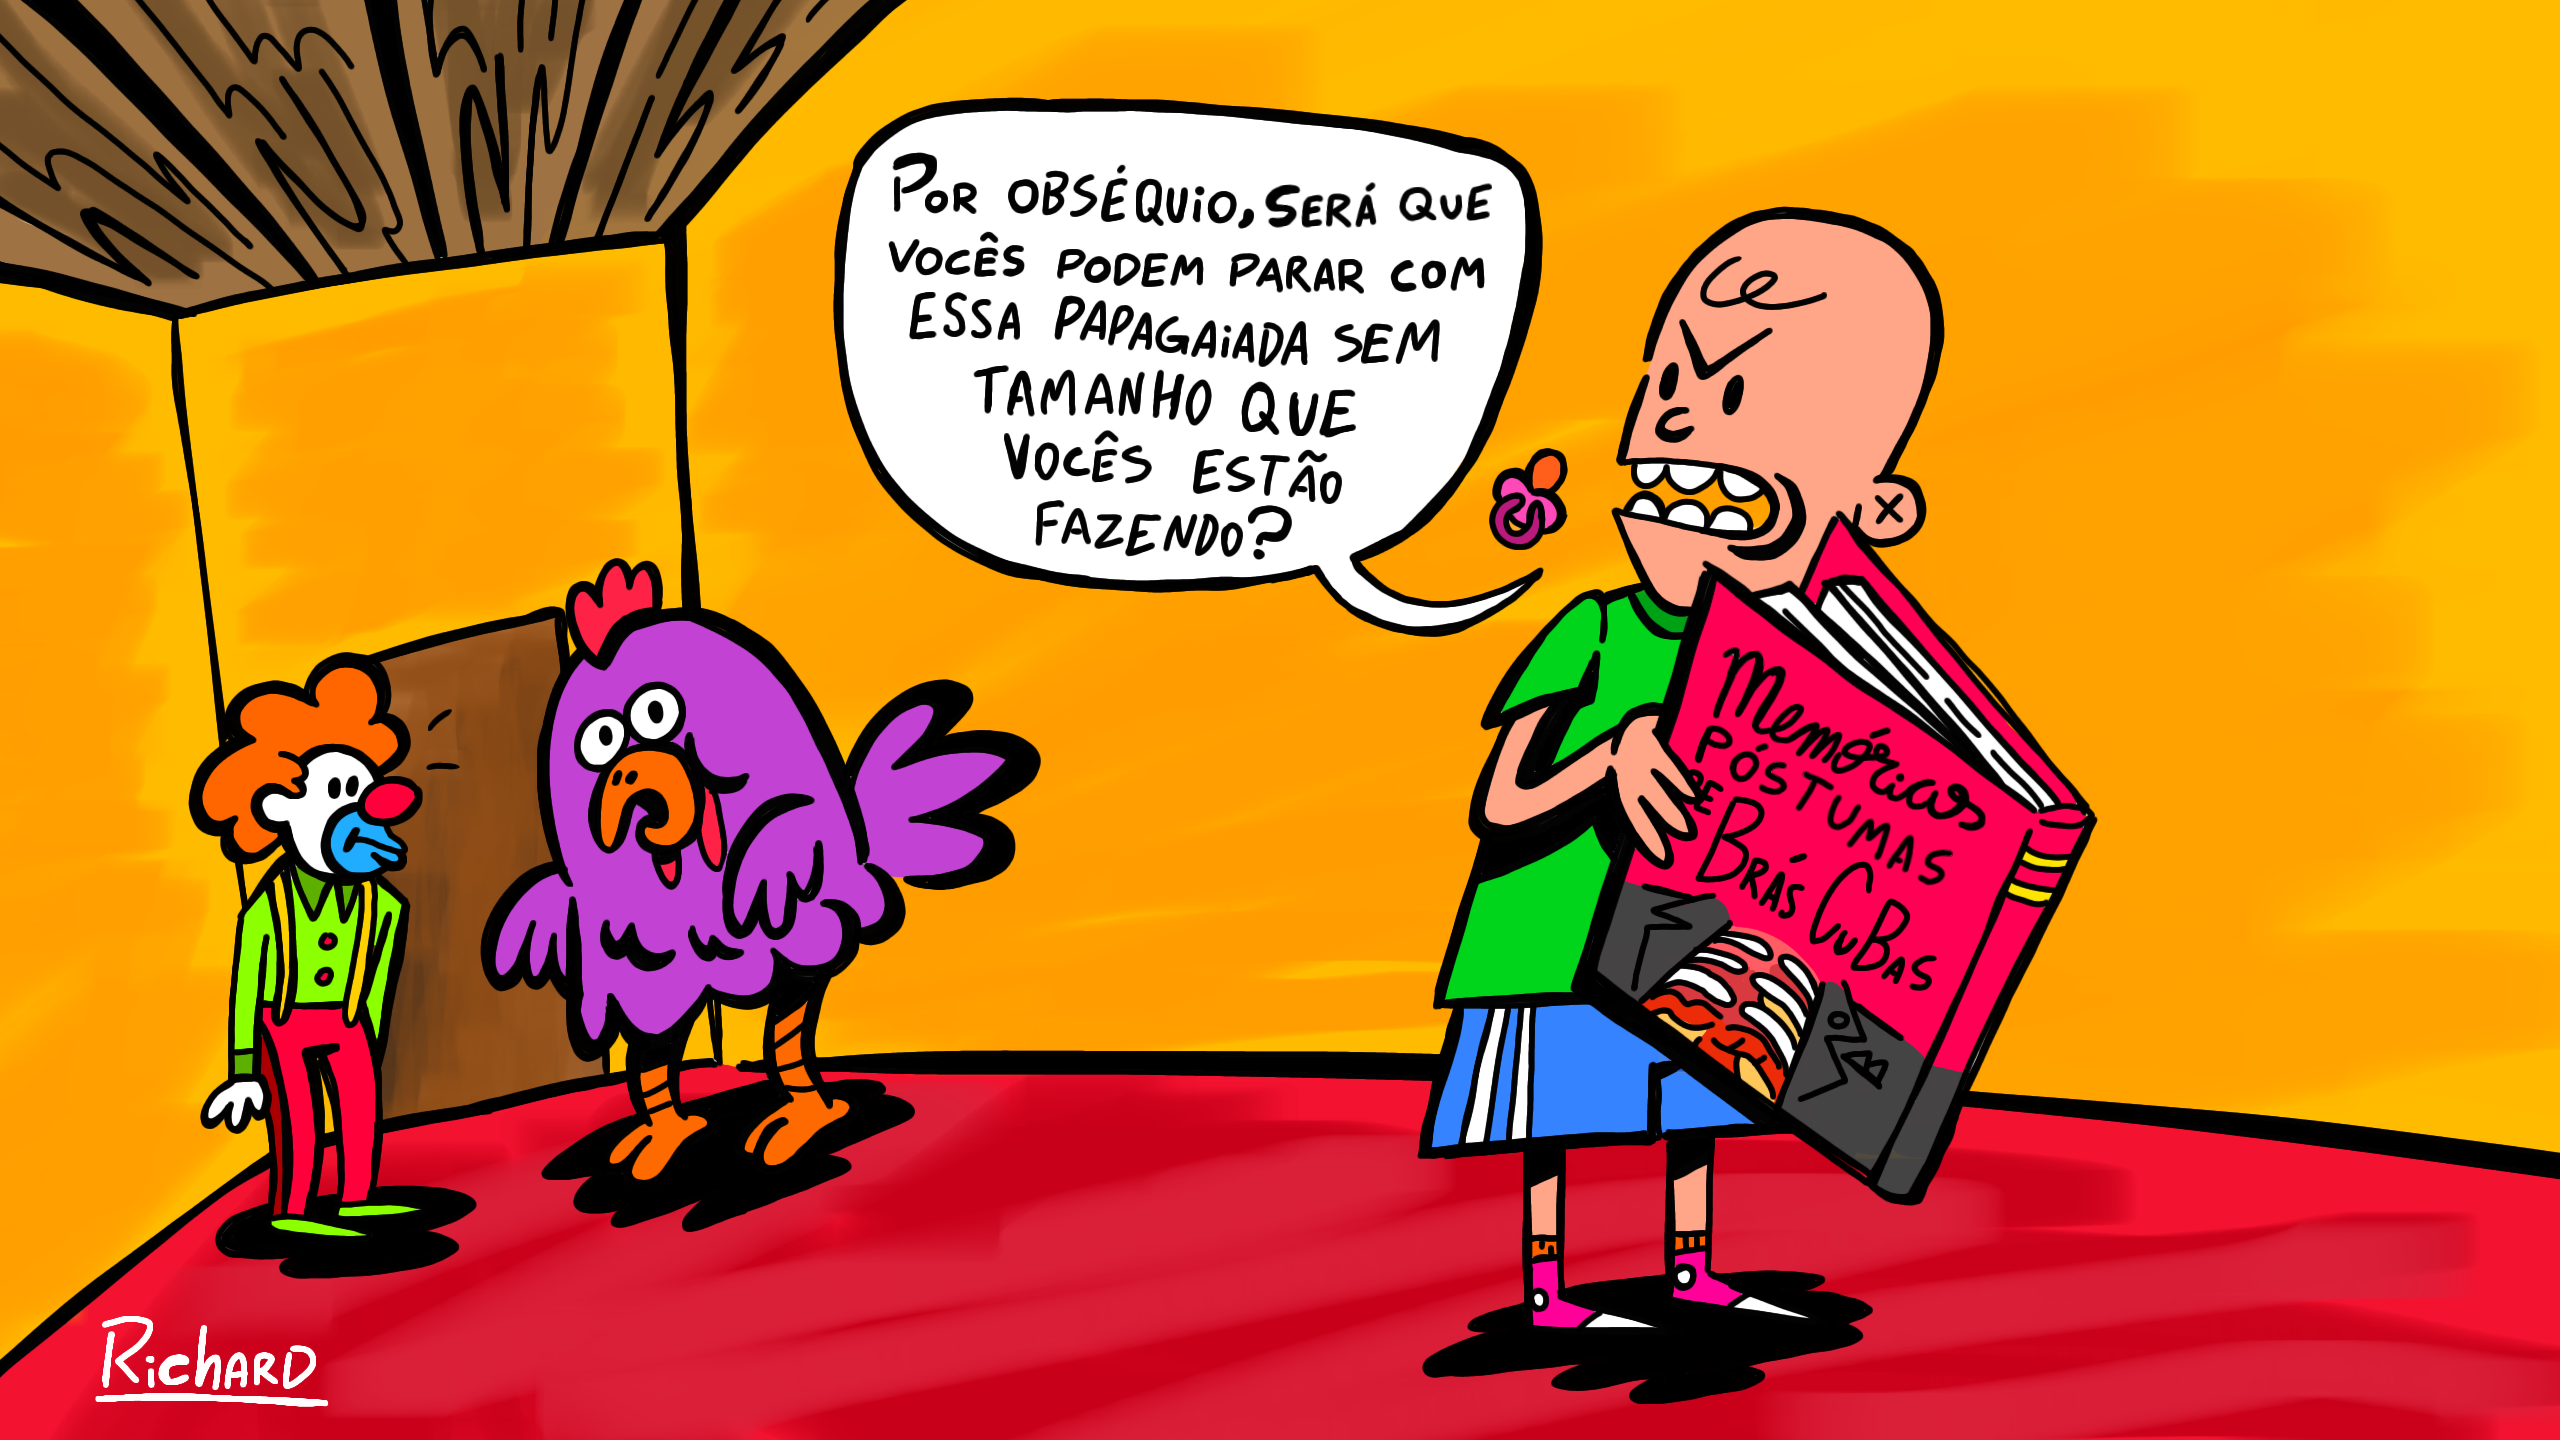 POR OBSÉQUIO, SERÁ QUE
VOCÊS PODEM PARAR COM
ESSA PAPAGAIADA SEM
TAMANHO QUE
VOCÊS ESTÃO
FAZENDO?
Memórias
PÓSTUMAS
DE
BRÁS CUBAS
RICHARD